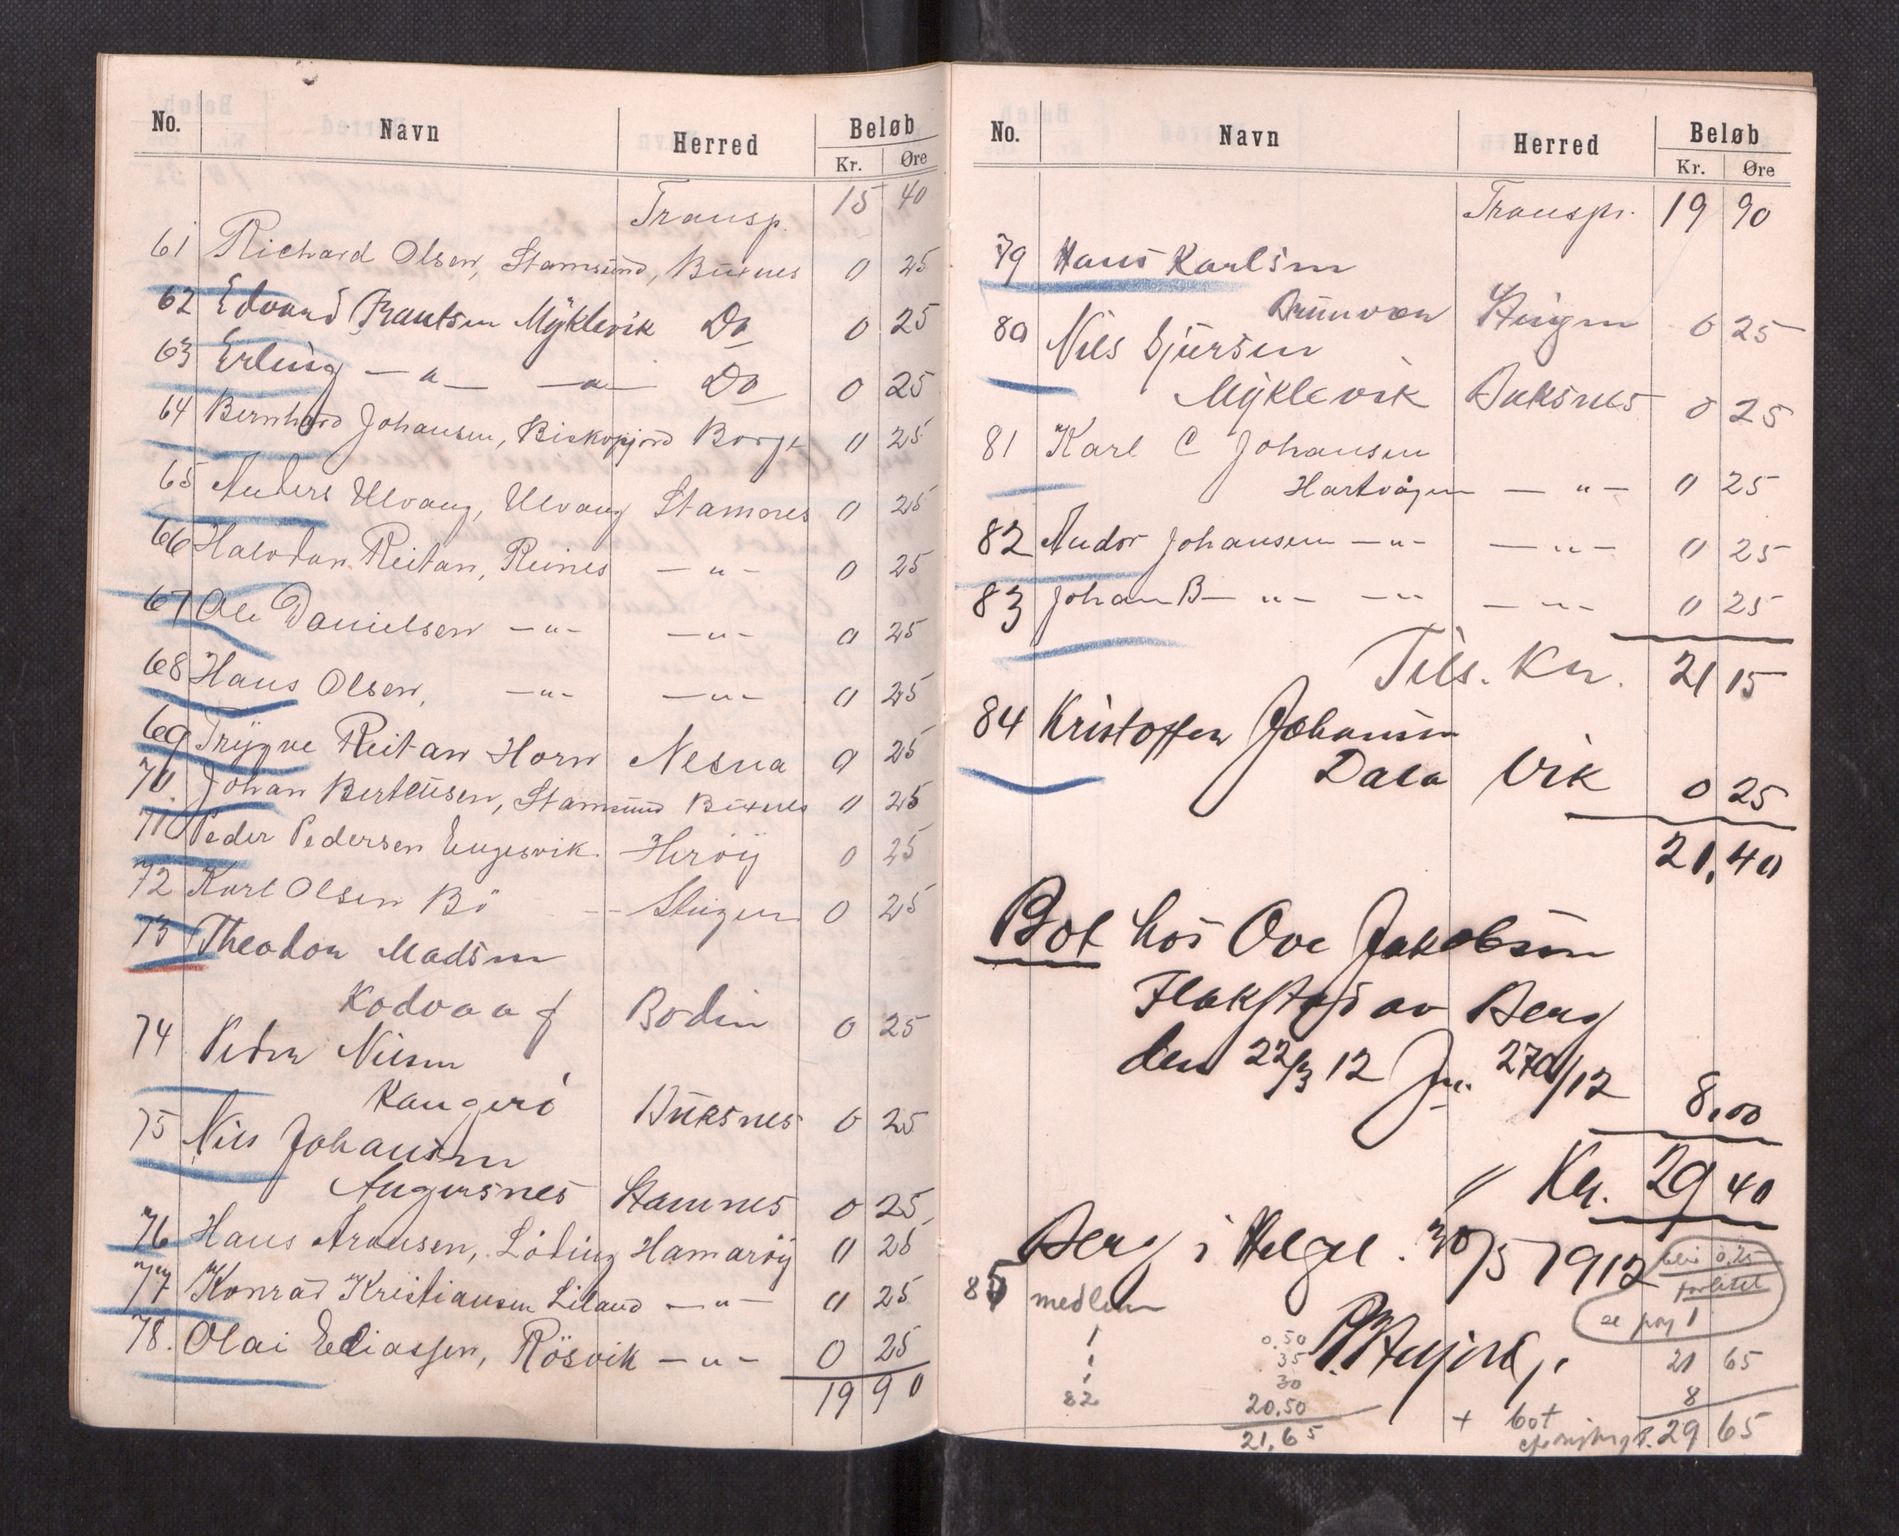 No. Navn Herred Beløb
Kr. Øre
Transp. 15 40
61 Richard Olsen, Stamsund, Buxnes 0 25
62 Edvard Frantsen Myklevik Do 0 25
63 Erling — " — — " — Do 0 25
64 Bernhard Johansen, Biskopjord Borge 0 25
65 Anders Ulvang, Ulvang Stamnes 0 25
66 Halvdan Reitan, Reines — " — 0 25
67 Ole Danielsen — " — — " — 0 25
68 Hans Olsen, — " — — " — 0 25
69 Trygve Reitan Horn Nesna 0 25
70. Johan Berteusen, Stamsund Buxnes 0 25
71. Peder Pedersen Engesvik. Herøy 0 25
72 Karl Olsen Bö Steigen 0 25
73 Theodor Madsen
Kodvaag Bodin 0 25
74 Peder Nilsen
Kangerö Buksnes 0 25
75 Nils Johansen
Angersnes Stamnes 0 25
76 Hans Arausen, Löding Hamarøy 0 25
77 Konrad Kristiansen Liland — " — 0 25
78. Olai Eliassen, Rösvik — " — 0 25
19 90
No. Navn Herred Beløb
Kr. Øre
Transp. 19 90
79 Hans Karlsen
Brunvær Steigen 0 25
80 Nils Sjursen
Myklevik Buksnes 0 25
81 Karl C Johansen
Hartvågen — " — 0 25
82 Andor Johansen — " — — " — 0 25
83 Johan B — " — — " — — " — 0 25
Tils. Kr. 21 15
84 Kristoffer Johansen
Dala Vik 0 25
21,40
Bot hos Ove Jakobsen
Flakstad av Berg
den 22/3 12 Jn. 270/12
8,00
" Kr. 29 40
Berg i Helgel. 30/5 1912
blir 0.25
forlitet
se pag 1
85 medlem
1 0.50
1 35 21 65
1 30 8
82 20.50
21,65 + bot 29 65